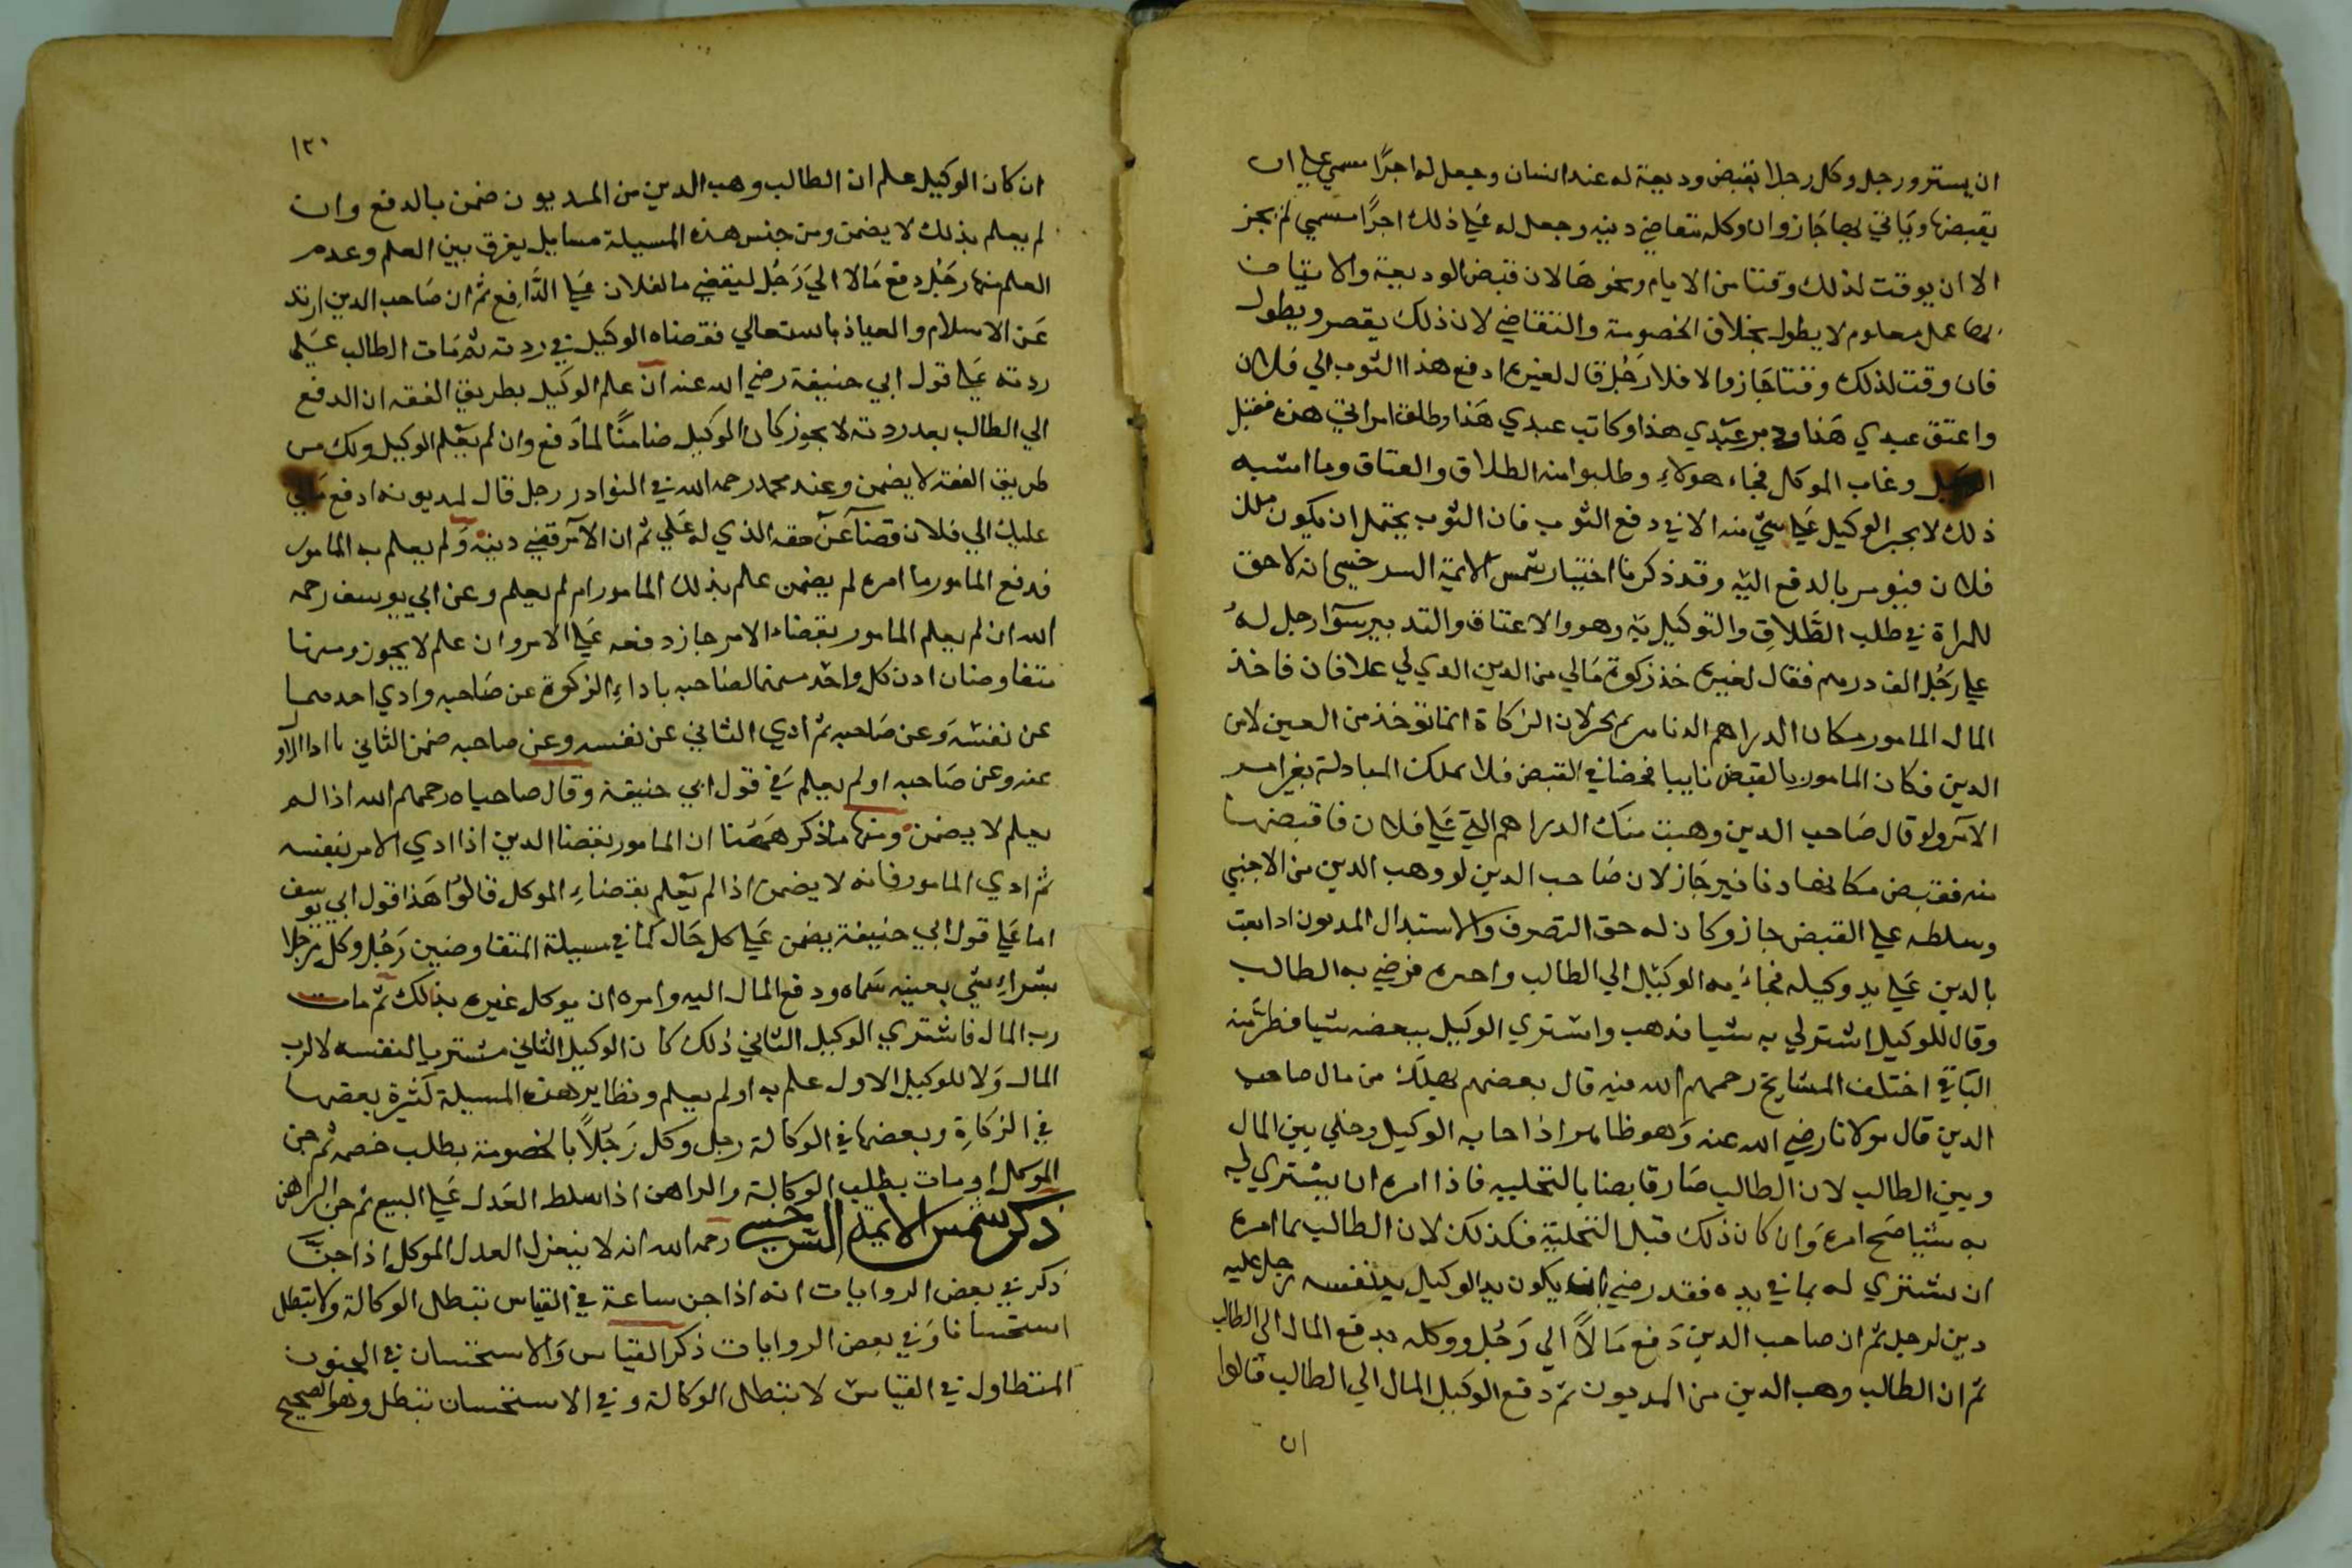 ان يسترد رجل وكل رجلا بقبض وديعة له عند انسان وجعل له اجرًا مسمي علي ان
يقبضها وياتي بها جاز وان وكله بتقاضي دينه وجعل له علي ذلك اجرًا مسمي لم يجز
الا ان يوقت لذلك وقتا من الايام ونحوها لان قبض الوديعة والاتيان
بها عمل معلوم لا يطول بخلاف الخصومة والتقاضي لان ذلك يقصر ويطول
فان وقت لذلك وقتا جاز والا فلا رجل قال لغيره ادفع هذا الثوب الي فلان
واعتق عبدي هذا ودبر عبدي هذا وكاتب عبدي هذا وطلق امراتي هذه فقبل
الوكيل وغاب الموكل فجاء هولاء وطلبوا منه الطلاق والعتاق وما اشبه
ذلك لا يجبر الوكيل علي شي منه الا في دفع الثوب فان الثوب يحتمل ان يكون ملك
فلان فيومر بالدفع اليه وقد ذكرنا اختيار شمس الايمة السرخسي انه لا حق
للمراة في طلب الطلاق والتوكيل به وهو والاعتاق والتدبير سوا رجل له
علي رجل الف درهم فقال لغيره خذ زكوة مالي من الدين الدي لي علا فلان فاخذ
المال المامور مكان الدراهم الدنانير لم يجز لان الزكاة انما توخذ من العين لا من
الدين فكان المامور بالقبض نايبا محضا في القبض فلا يملك المبادلة بغير امر
الآمر ولو قال صاحب الدين وهبت منك الدراهم التي علي فلان فاقبضها
منه فقبض مكانها دنانير جاز لان صاحب الدين لو وهب الدين من الاجنبي
وسلطه علي القبض جاز وكان له حق التصرف والاستبدال المديون اذا بعث
بالدين علي يد وكيله فجاء به الوكيل الي الطالب واخبره فرضي به الطالب
وقال للوكيل اشتر لي به شيا فذهب واشتري الوكيل ببعضه شيا فطر منه
الباقي اختلف المشايخ رحمهم الله فيه قال بعضهم يهلك من مال صاحب
الدين قال مولانا رضي الله عنه وهو ظاهر اذا جا به الوكيل وخلي بين المال
وبين الطالب لان الطالب صار قابضا بالتخلية فاذا امره ان يشتري له
به شيا صح امره وان كان ذلك قبل التخلية فكذلك لان الطالب لما امره
ان يشتري له بما في يده فقد رضي بان يكون يد الوكيل يد نفسه رجل عليه
دين لرجل ثم ان صاحب الدين دفع مالًا الي رجل ووكله بدفع المال الي الطالب
ثم ان الطالب وهب الدين من المديون ثم دفع الوكيل المال الي الطالب قالوا
ان
١٣٠
ان كان الوكيل علم ان الطالب وهب الدين من المديون ضمن بالدفع وان
لم يعلم بذلك لا يضمن ومن جنس هذه المسيلة مسايل يفرق بين العلم وعدم
العلم منها رجل دفع مالا الي رجل ليقضي ما لفلان علي الدافع ثم ان صاحب الدين ارتد
عن الاسلام والعياذ بالله تعالي فقضاه الوكيل في ردته ثم مات الطالب علي
ردته علي قول ابي حنيفة رضي الله عنه ان علم الوكيل بطريق الفقه ان الدفع
الي الطالب بعد ردته لا يجوز كان الوكيل ضامنًا لما دفع وان لم يعلم الوكيل ذلك من
طريق الفقه لا يضمن وعند محمد رحمه الله في النوادر رجل قال لمديونه ادفع مالي
عليك الي فلان قضاً عن حقه الذي له علي ثم ان الآمر قضي دينه ولم يعلم به المامور
فدفع المامور ما امره لم يضمن علم بذلك المامور ام لم يعلم وعن ابي يوسف رحمه
الله ان لم يعلم المامور بقضاء الامر جاز دفعه علي الامر وان علم لا يجوز ومنها
متفاوضان اذن كل واحد منهما لصاحبه باداء الزكوة عن صاحبه وادي احدهما
عن نفسه وعن صاحبه ثم ادي الثاني عن نفسه وعن صاحبه ضمن الثاني ما ادا الاول
عنه وعن صاحبه او لم يعلم في قول ابي حنيفة وقال صاحباه رحمهم الله اذا لم
يعلم لا يضمن ومنها ما ذكر همهنا ان المامور بقضا الدين اذا ادي الامر بنفسه
ثم ادي المامور فانه لا يضمن اذا لم يعلم بقضاء الموكل قالوا هذا قول ابي يوسف
اما علي قول ابي حنيفة يضمن علي كل حال كما في مسيلة المتفاوضين رجل وكل رجلا
بشراء شي بعينه سماه ودفع المال اليه وامره ان يوكل غيره بذلك ثم مات
رب المال فاشتري الوكيل الثاني ذلك كان الوكيل الثاني مشتريا لنفسه لا لرب
المال ولا للوكيل الاول علم به او لم يعلم ونظاير هذه المسيلة كثيرة بعضها
في الزكاة وبعضها في الوكالة رجل وكل رجلًا بالخصومة بطلب خصمه ثم جن
الموكل او مات بطلت الوكالة والراهن اذا سلط العدل علي البيع ثم جن الراهن
ذكر شمس الايمة السرخسي رحمه الله انه لا ينعزل العدل الموكل اذا جن
ذكر في بعض الروايات انه اذا جن ساعة في القياس تبطل الوكالة ولا تبطل
استحسانا وفي بعض الروايات ذكر القياس والاستحسان في الجنون
المتطاول في القياس لا تبطل الوكالة وفي الاستحسان تبطل وهو الصحيح